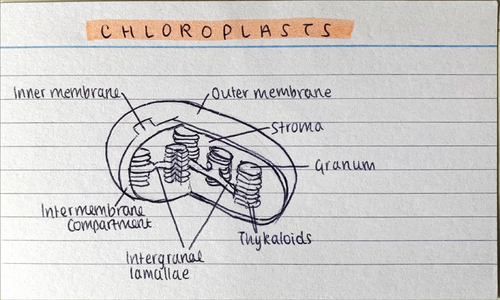 CHLOROPLASTS
Inner membrane
Outer membrane
Stroma
Granum
Intermembrane
compartment
Thykaloids
Intergranae
lamallae